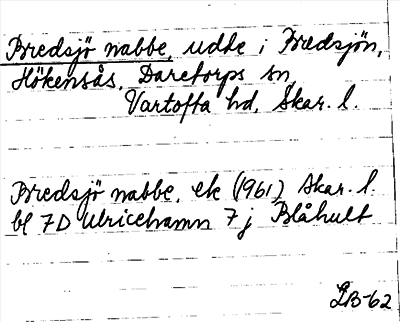 Bredsjö nabbe, udde i Bredsjön,
Hökensås, Daretorps sn,
Vartofta hd, Skar. l.
Bredsjö nabbe, ek (1961) Skar. l.
bl 7D Ulricehamn 7 j Blåhult
LB-62